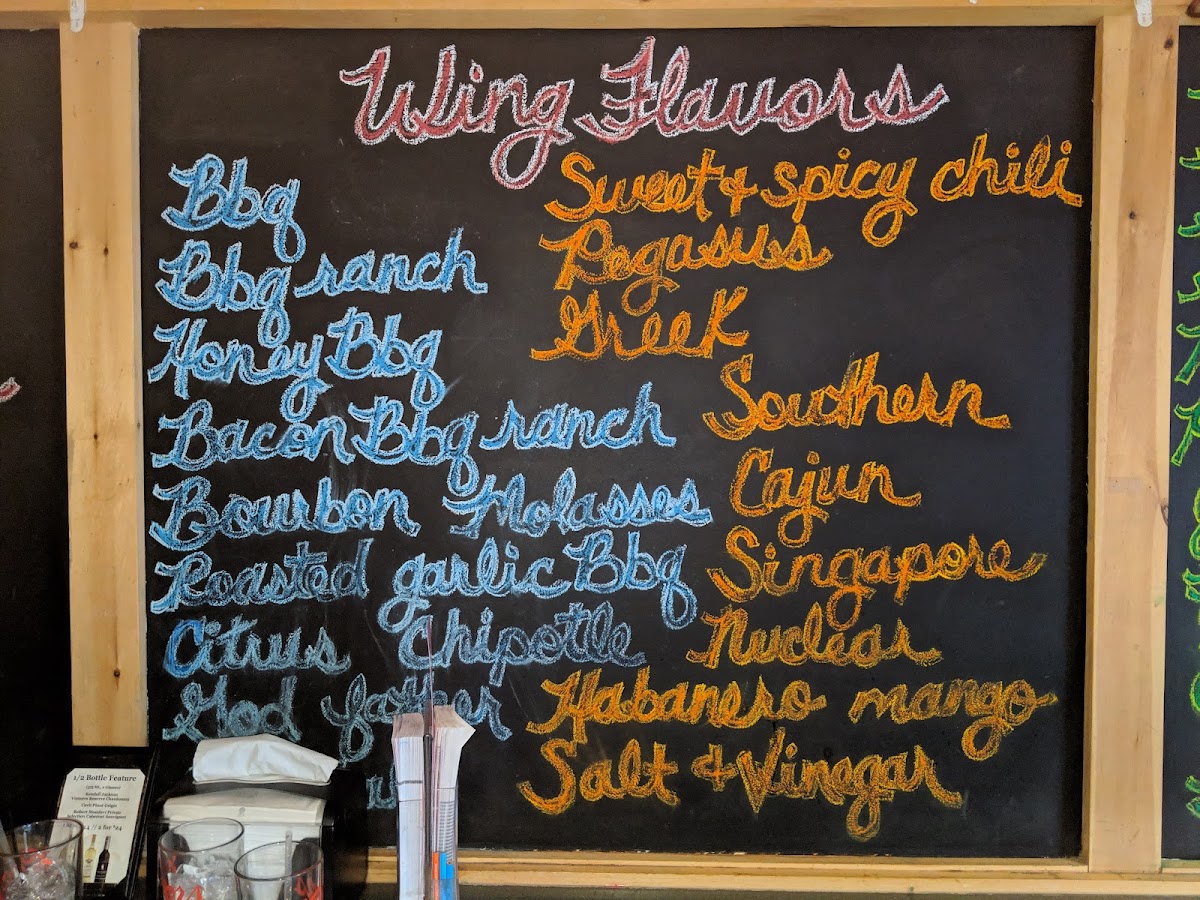 Wing Flavors
Bbq
Bbq ranch
Honey Bbq
Bacon Bbq ranch
Bourbon Molasses
Roasted garlic Bbq
Citrus Chipotle
God father
Sweet & spicy chili
Pegasus
Greek
Southern
Cajun
Singapore
Nuclear
Habanero mango
Salt & Vinegar
1/2 Bottle Feature